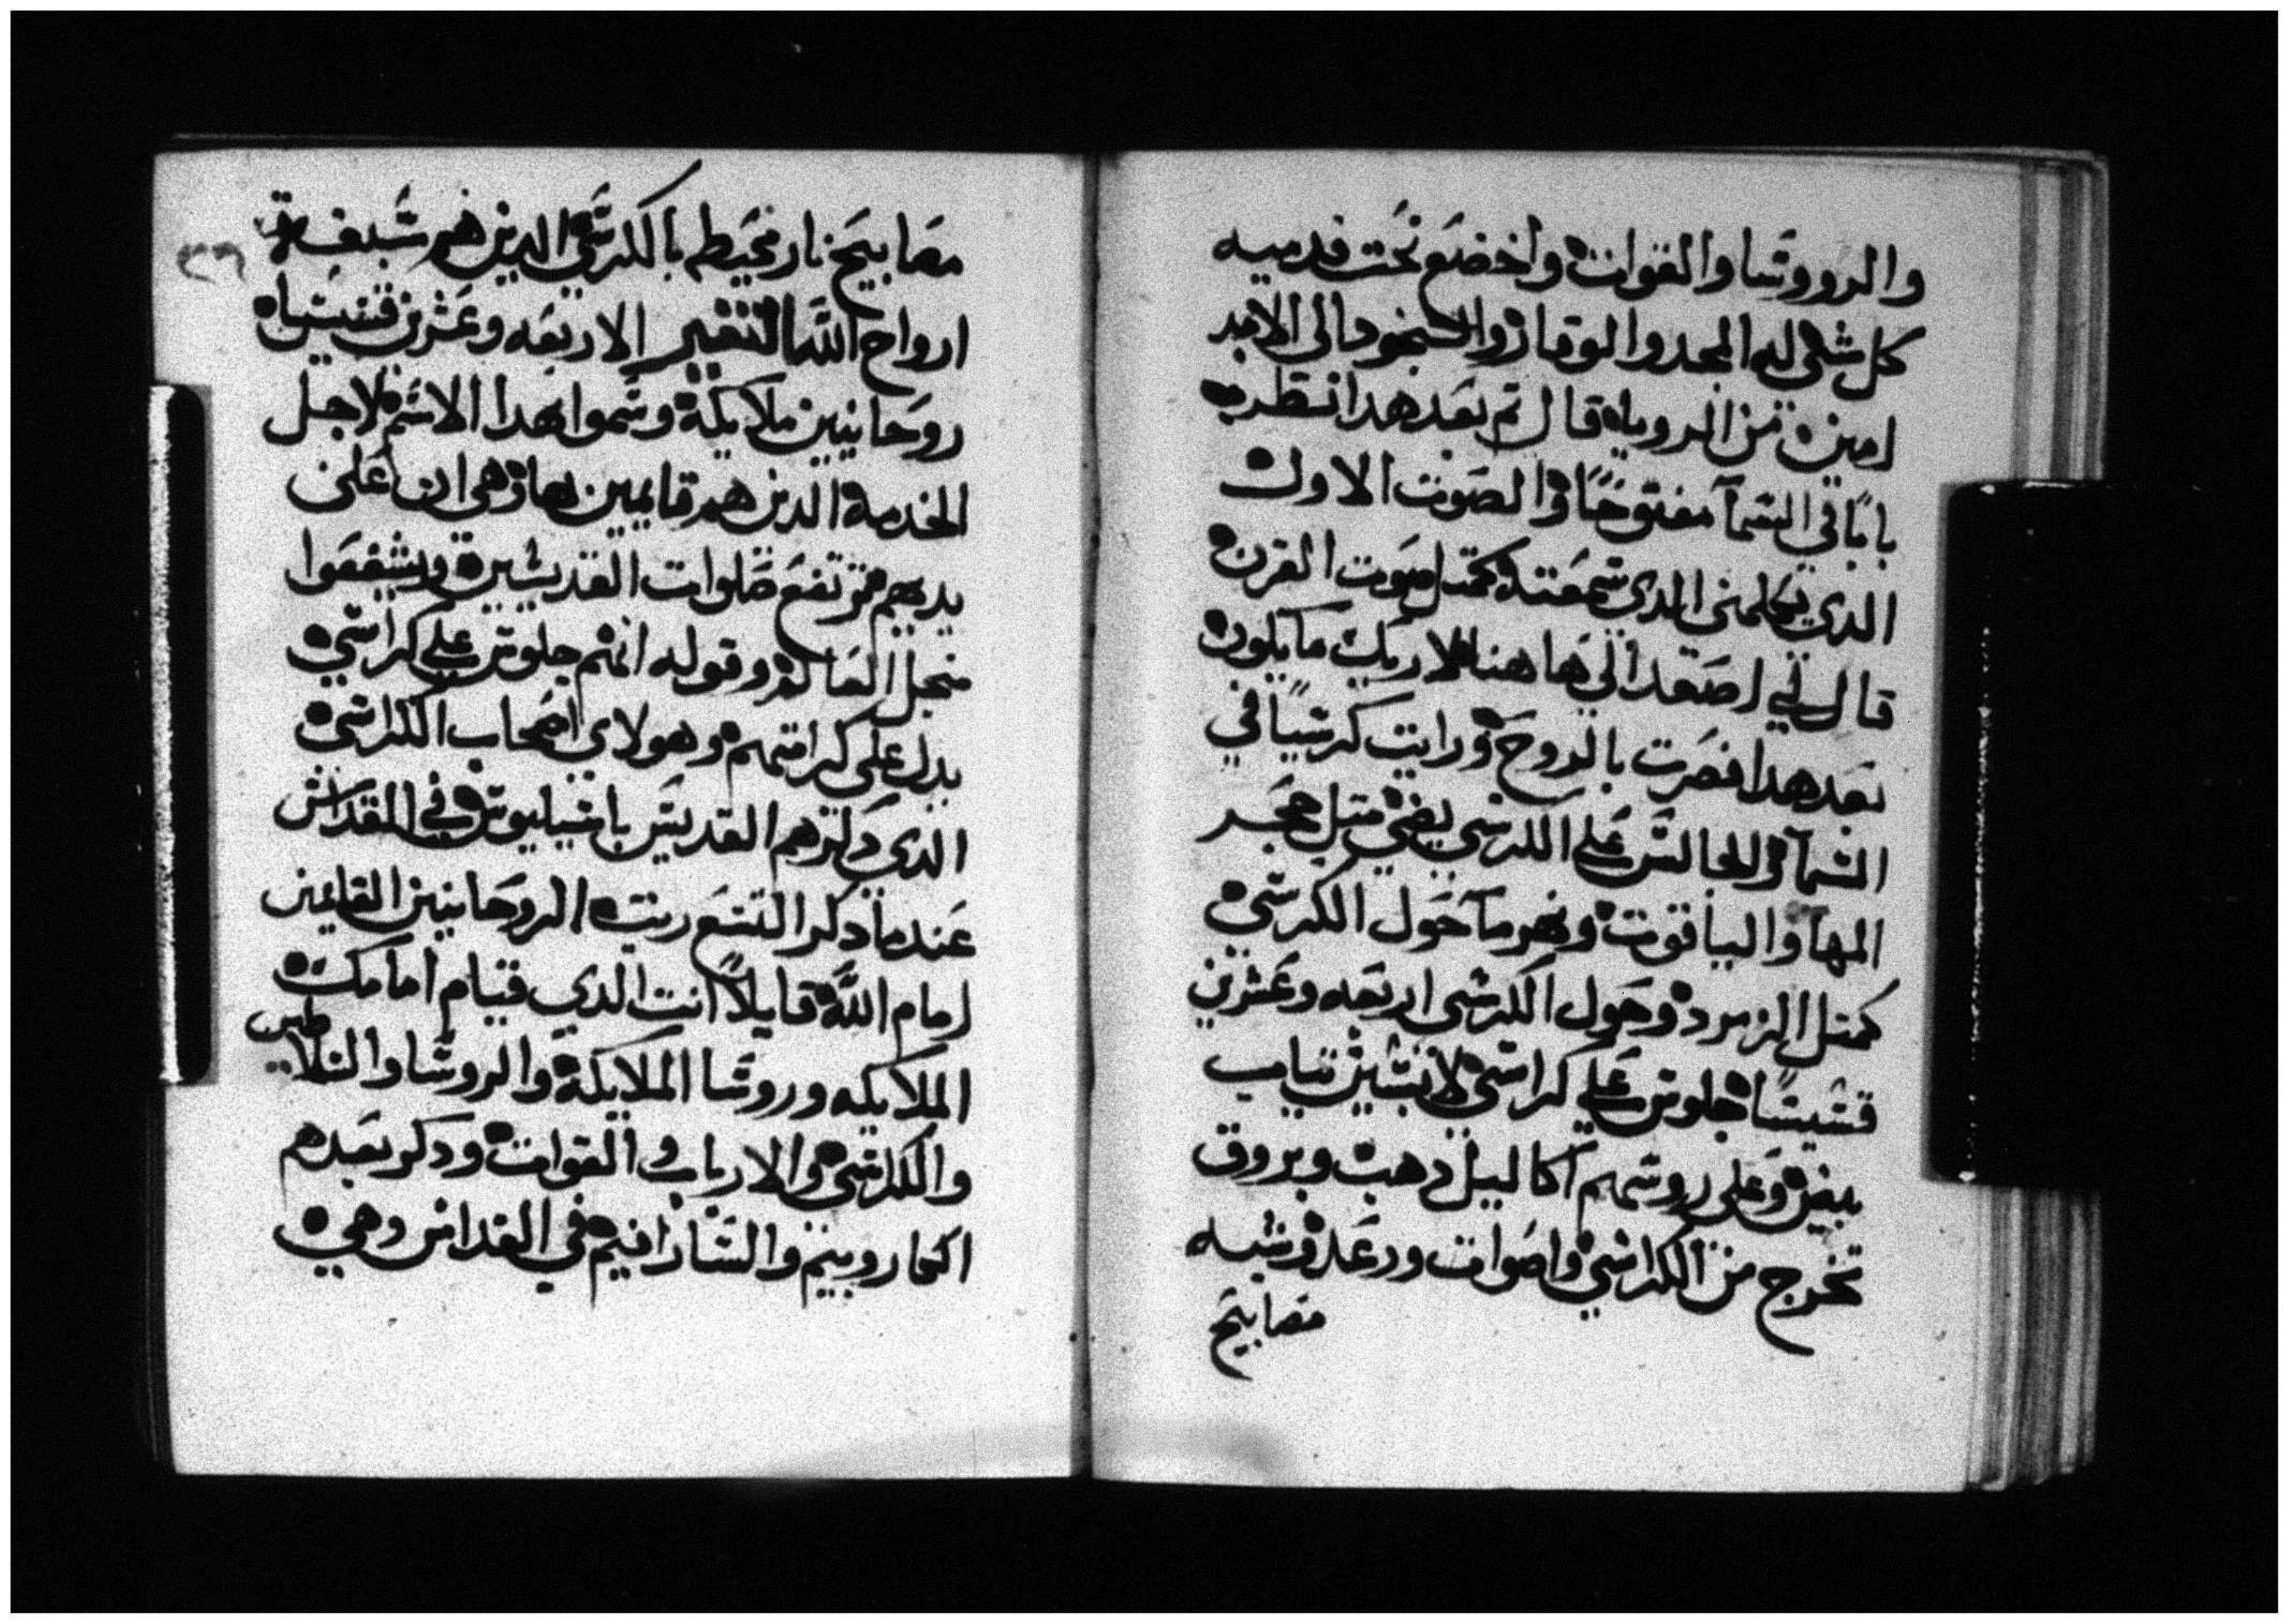 والرووسا والقوات واخضع تحت قدميه
كل شي له المجد والوقار والسجود الى الابد
امين من الرويا قال تم بعد هدا نظرت
بابًا في السمآ مفتوحًا والصوت الاول
الدي يكلمني الدي سمعته كمتل صوت القرن
قال لي اصعد الي هاهنا لاريك ما يكون
بعد هدا فصرت بالروح ورايت كرسيًا في
السمآ والجالس علي الكرسي يضي متل حجر
المها والياقوت ونهر مآ حول الكرسي
كمتل الزمرد وحول الكرسي اربعه وعشرين
قسيسًا جلوس علي كراسي لابسين تياب
بيض وعلى روسهم اكاليل دهب وبروق
تخرج من الكراسي واصوات ورعد وشبه
مصابيح
٣٦
مصابيح نار محيط بالكرسي الدين هم سبعة
ارواح الله التفسير الاربعه وعشرين قسيس
روحانيين ملايكة وسموا هدا الاسم لاجل
الخدمة الدين هم قايمين بها وهي ان على
يديهم ترتفع صلوات القديسين ويشفعوا
منجل العالم وقوله انهم جلوس علي كراسي
يدل على كرامتهم وهولاي اصحاب الكراسي
الدي دكرهم القديس باسيليوس في القداس
عندما دكر التسع رتب الروحانيين القايمين
امام الله قايلاً انت الدي قيام امامك
الملايكه وروسا الملايكة والروسا والسلاطين
والكراسي والارباب والقوات ودكر بعدهم
الكاروبيم والسارافيم في القداس وهي